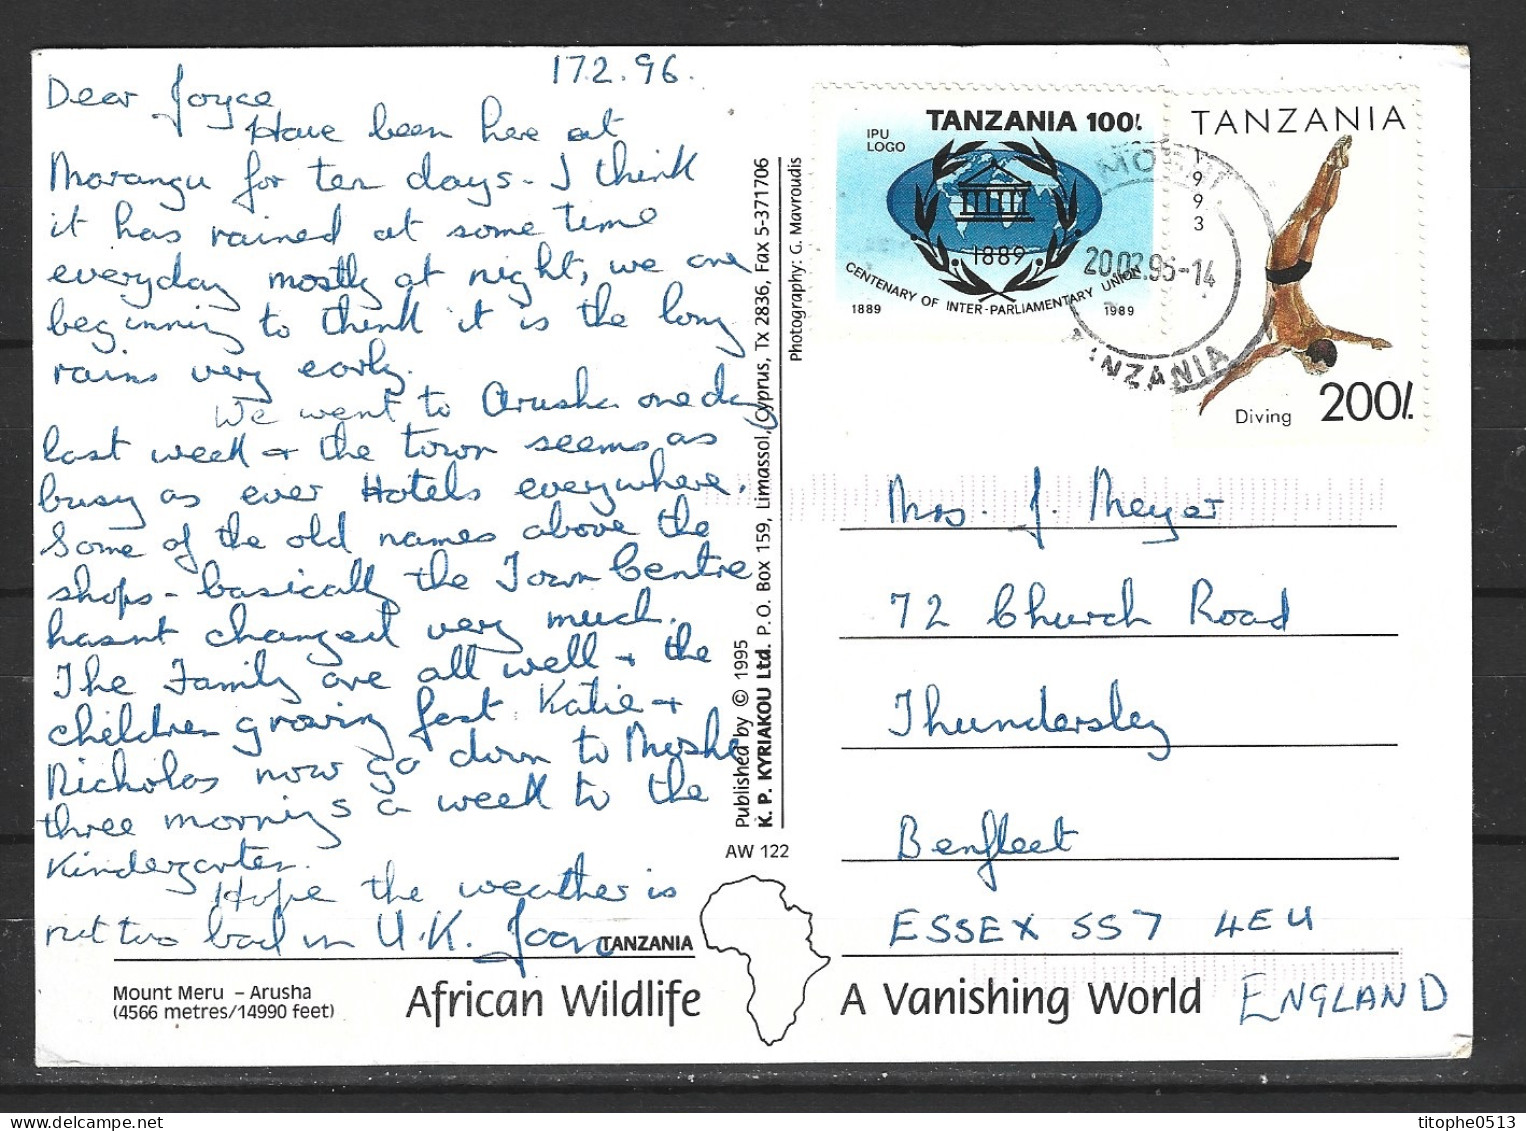 17.2.96.
Dear Joyce
Have been here at
Marangu for ten days - I think
it has rained at some time
everyday mostly at night, we are
beginning to think it is the long
rains very early.
We went to Arusha one day
last week + the town seems as
busy as ever Hotels everywhere.
Some of the old names above the
shops - basically the Town Centre
hasnt changed very much.
The Family are all well + the
children growing fast Katie +
Nicholas now go down to Moshi
three mornings a week to the
Kindergarten.
Hope the weather is
not too bad in U.K. Joan
TANZANIA
Mount Meru – Arusha
(4566 metres/14990 feet)
African Wildlife
A Vanishing World
Published by © 1995
K. P. KYRIAKOU Ltd. P. O. Box 159, Limassol, Cyprus, Tx 2836, Fax 5-371706
Photography: G. Mavroudis
AW 122
IPU
LOGO
TANZANIA 100/.
1889
CENTENARY OF INTER-PARLIAMENTARY UNION
1889
1989
TANZANIA
1993
Diving
200/.
MOSHI
20.02.96-14
TANZANIA
Mrs. J. Meyer
72 Church Road
Thundersley
Benfleet
ESSEX SS7 4EU
ENGLAND
titophe0513